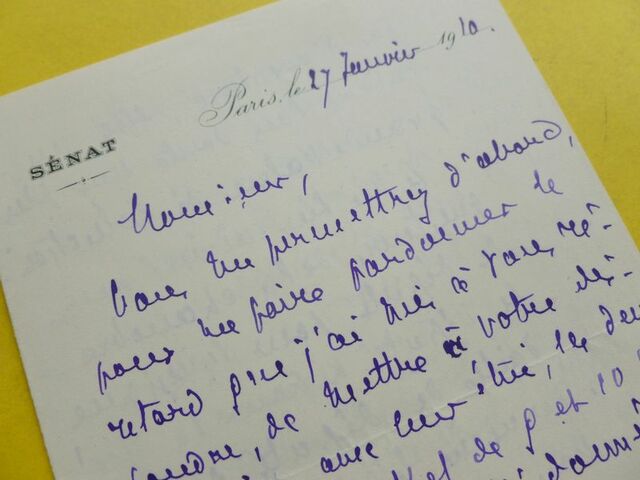 Paris, le 27 Janvier 1910.
SÉNAT
Monsieur,
Vous me permettrez d'abord,
pour me faire pardonner le
retard que j'ai mis à vous ré-
pondre, de mettre à votre dis-
avec les deux
de 9 et 10